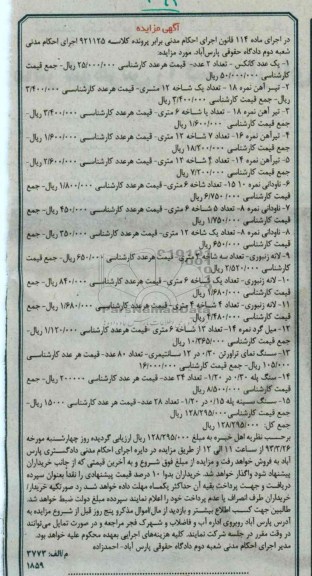 آگهی مزایده
در اجرای ماده ۱۱۴ قانون اجرای احکام مدنی برابر پرونده کلاسه ۹۲۱۱۲۵ اجرای احکام مدنی
شعبه دوم دادگاه حقوقی پارس‌آباد. مورد مزایده:
۱- یک عدد کانکس - تعداد ۲ عدد- قیمت هرعدد کارشناسی ۲۵/۰۰۰/۰۰۰ ریال- جمع قیمت
کارشناسی ۵۰/۰۰۰/۰۰۰ ریال
۲- تیرآهن نمره ۱۸ - تعداد یک شاخه ۱۲ متری- قیمت هرعدد کارشناسی ۳/۴۰۰/۰۰۰
ریال- جمع قیمت کارشناسی ۳/۴۰۰/۰۰۰ ریال
۳- تیر آهن نمره ۱۸ - تعداد یا شاخه ۶ متری- قیمت هرعدد کارشناسی ۳/۴۰۰/۰۰۰ ریال-
جمع قیمت کارشناسی ۱/۶۰۰/۰۰۰ ریال
۴- تیرآهن نمره ۱۶- تعداد ۷ شاخه ۱۲ متری- قیمت هرعدد کارشناسی ۱/۶۰۰/۰۰۰ ریال-
جمع قیمت کارشناسی ۱۸/۲۰۰/۰۰۰ ریال
۵- تیرآهن نمره ۱۴- تعداد ۴ شاخه ۱۲ متری- قیمت هرعدد کارشناسی ۲/۶۰۰/۰۰۰ ریال-
جمع قیمت کارشناسی ۷/۲۰۰/۰۰۰ ریال
۶- ناودانی نمره ۱۰ ۱۵- تعداد شاخه ۶ متری- قیمت هرعدد کارشناسی ۱/۸۰۰/۰۰۰ ریال- جمع
قیمت کارشناسی ۶/۷۵۰/۰۰۰ ریال
۷- ناودانی نمره ۸- تعداد ۵ شاخه ۶ متری- قیمت هرعدد کارشناسی ۴۵۰/۰۰۰ ریال- جمع
قیمت کارشناسی ۱/۷۵۰/۰۰۰ ریال
۸- ناودانی نمره ۸- تعداد یک شاخه ۱۲ متری- قیمت هرعدد کارشناسی ۳۵۰/۰۰۰ ریال- جمع
قیمت کارشناسی ۶۵۰/۰۰۰ ریال
۹- لانه زنبوری- تعداد سه شاخه متری- قیمت هرعدد کارشناسی ۶۵۰/۰۰۰ ریال- جمع قیمت
کارشناسی ۲/۵۲۰/۰۰۰ ریال
۱۰- لانه زنبوری- تعداد یک شاخه ۶ متری- قیمت هرعدد کارشناسی ۸۴۰/۰۰۰ ریال- جمع
قیمت کارشناسی ۱/۶۸۰/۰۰۰ ریال
۱۱- لانه زنبوری- تعداد ۴ شاخه ۴ متری- قیمت هرعدد کارشناسی ۱/۶۸۰/۰۰۰ ریال- جمع
قیمت کارشناسی ۴/۴۸۰/۰۰۰ ریال
۱۲- میل گرد نمره ۱۴- تعداد ۱۳ شاخه ۶ متری- قیمت هرعدد کارشناسی ۱/۱۲۰/۰۰۰ ریال-
جمع قیمت کارشناسی ۱۰/۳۶۵/۰۰۰ ریال
۱۳- سنگ نمای تراورتن ۰/۳۰ در ۱۲ سانتیمتری- تعداد ۸۰ عدد- قیمت هر عدد کارشناسی
۱۰۵/۰۰۰ ریال- جمع قیمت کارشناسی ۱۶/۰۰۰/۰۰۰ ریال
۱۴- سنگ پله ۰/۳۰ در ۱/۲۰- تعداد ۳۴ عدد- قیمت هر عدد کارشناسی ۲۰۰۰۰۰ ریال- جمع
قیمت کارشناسی ۸/۵۰۰/۰۰۰ ریال
۱۵- سنگ سینه پله ۰/۱۵ در ۱/۲۰- تعداد ۲۸ عدد- قیمت هر عدد کارشناسی ۱۵۰۰۰ ریال-
جمع قیمت کارشناسی ۱۲۸/۲۹۵/۰۰۰ ریال
جمع کل: ۱۲۸/۲۹۵/۰۰۰ ریال
برحسب نظریه اهل خبره به مبلغ ۱۲۸/۲۹۵/۰۰۰ ریال ارزیابی گردیده روز چهارشنبه مورخه
۹۳/۳/۲۶ از ساعت ۱۱ الی ۱۲ از طریق مزایده در دایره اجرای احکام مدنی دادگستری پارس
آباد به فروش خواهد رفت و مزایده از مبلغ فوق شروع و به آخرین قیمتی که از جانب خریداران
پیشنهاد شود واگذار خواهد شد. خریداران بدوا ۱۰ درصد قیمت پیشنهادی را نقدا بعنوان سپرده
دریافت و جهت پرداخت بقیه آن حداکثر یکماه مهلت داده خواهد شد در صورتیکه خریدار/
خریداران ظرف انصراف یا عدم پرداخت خود را اعلام نمایند سپرده مبلغ دولت ضبط خواهد شد.
طالبین جهت کسب اطلاع بیشتر و بازدید از مال/اموال مذکور پنج روز قبل از شروع مزایده به
آدرس پارس آباد روبروی اداره آب و فاضلاب و شهرک فجر مراجعه و در صورت تمایل می‌توانند
در وقت مقرر در جلسه شرکت نمایند. کلیه هزینه‌های اجرایی بعهده محکوم علیه خواهد بود.
مدیر اجرای احکام مدنی شعبه دوم دادگاه حقوقی پارس آباد- احمدزاده
م الف: ۳۷۷۳
۱۸۵۹